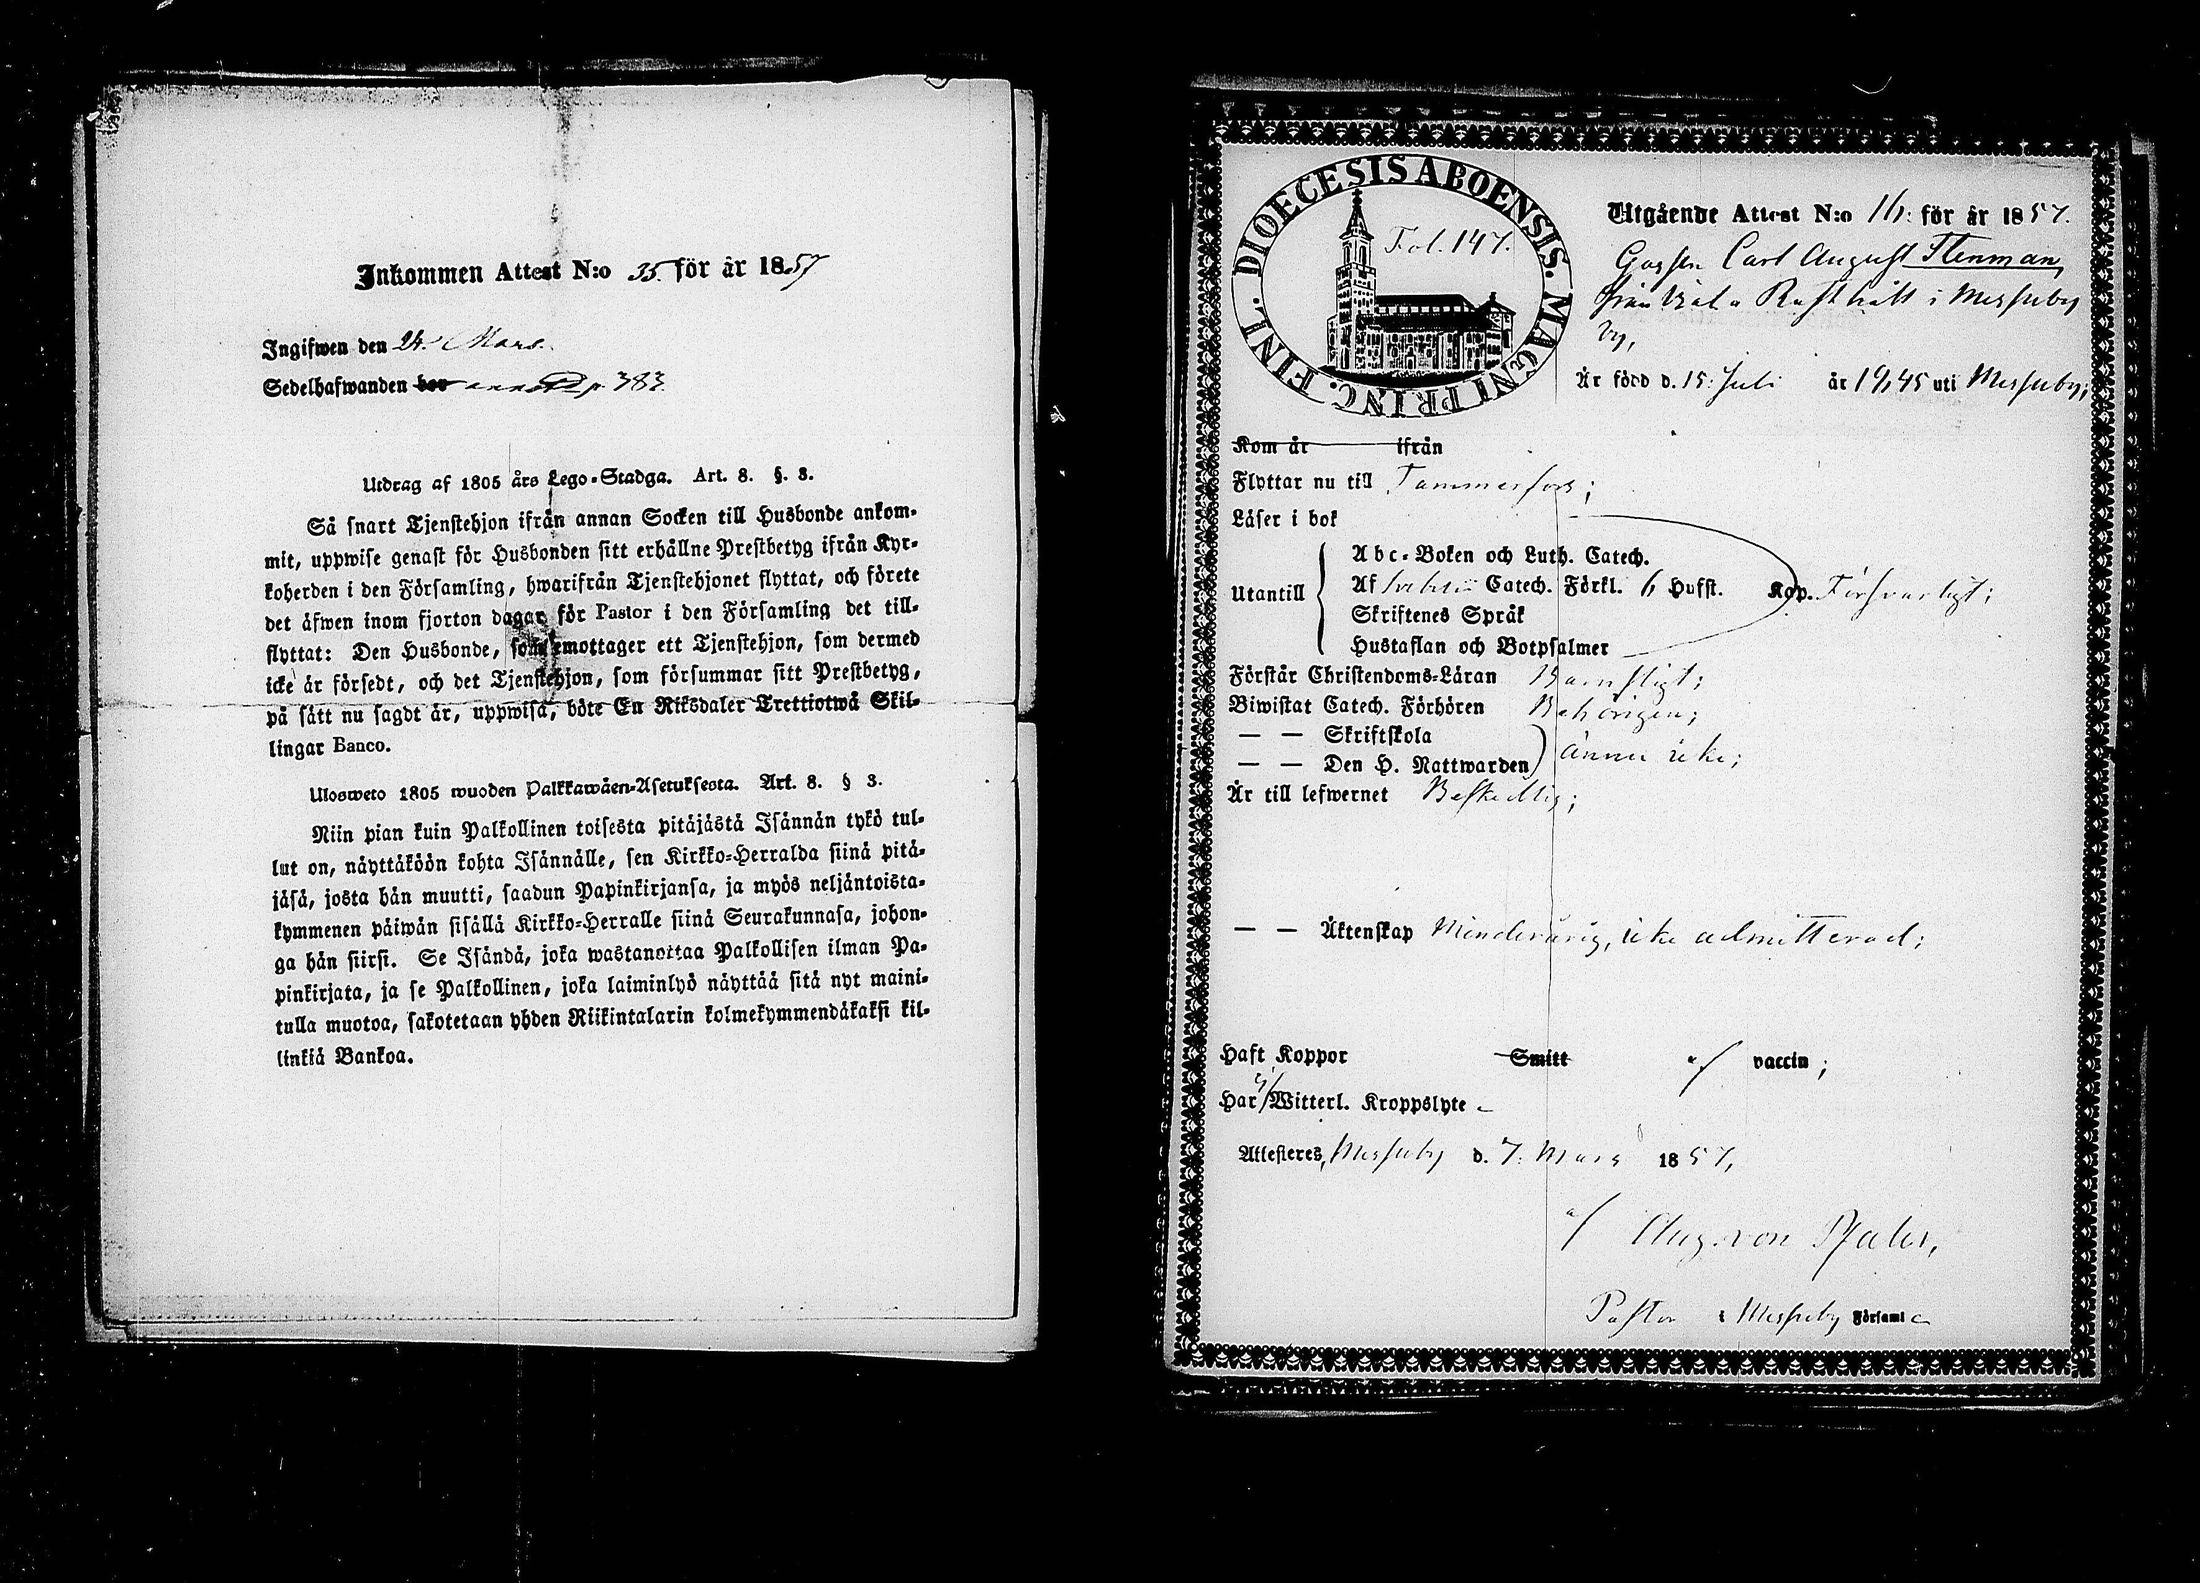 Inkommen Attest N:o 35. för år 1857
Ingifwen den 24. Mars.
Sedelhafwanden bor p 383.
Utdrag af 1805 års Lego-Stadga. Art. 8. §. 3.
Så snart Tjenstehjon ifrån annan Socken till Husbonde ankom-
mit, uppwise genast för Husbonden sitt erhållne Prestbetyg ifrån Kyr-
koherden i den Församling, hwarifrån Tjenstehjonet flyttat, och förete
det äfwen inom fjorton dagar för Pastor i den Församling det till-
flyttat: Den Husbonde, som emottager ett Tjenstehjon, som dermed
icke är försedt, och det Tjenstehjon, som försummar sitt Prestbetyg,
på sätt nu sagdt är, uppwisa, böte En Riksdaler Trettiotwå Skil-
lingar Banco.
Ulosweto 1805 wuoden Palkkawäen-Asetuksesta. Art. 8. § 3.
Niin pian kuin Palkollinen toisesta pitäjästä Isännän tykö tul-
lut on, näyttäköön kohta Isännälle, sen Kirkko-Herralda siinä pitä-
jäsä, josta hän muutti, saadun Papinkirjansa, ja myös neljäntoista-
kymmenen päiwän sisällä Kirkko-Herralle siinä Seurakunnasa, johon-
ga hän siirsi. Se Isändä, joka wastanottaa Palkollisen ilman Pa-
pinkirjata, ja se Palkollinen, joka laiminlyö näyttää sitä nyt maini-
tulla muotoa, sakotetaan yhden Riikintalarin kolmekymmendäkaksi kil-
linkiä Bankoa.
DIOECESIS ABOENSIS. MAGNI PRINC. FINL.
Fol. 147.
Utgående Attest N:o 16: för år 1857.
Gossen Carl August Stenman,
från Rusthåll i Messuby
by,
Är född d. 15: Juli år 1845 uti Messuby;
Kom år ifrån
Flyttar nu till Tammerfors;
Läser i bok
Utantill
Abc-Boken och Luth. Catech.
Af Catech. Förkl. 6 Hufst.
Skriftenes Språk
Hustaflan och Botpsalmer
Kap. Försvarligt;
Förstår Christendoms-Läran Barnsligt;
Biwistat Catech. Förhören Behörigen;
— — Skriftskola
— — Den H. Nattwarden
ännu icke;
Är till lefwernet Beskedlig;
— — Äktenskap Minderårig, icke admitterad;
Haft Koppor Smitt af vaccin;
Har ej Witterl. Kroppslyte
Attesteres, Messuby d. 7: Mars 1857,
Aug. von Pfaler,
Pastor i Messuby Församl